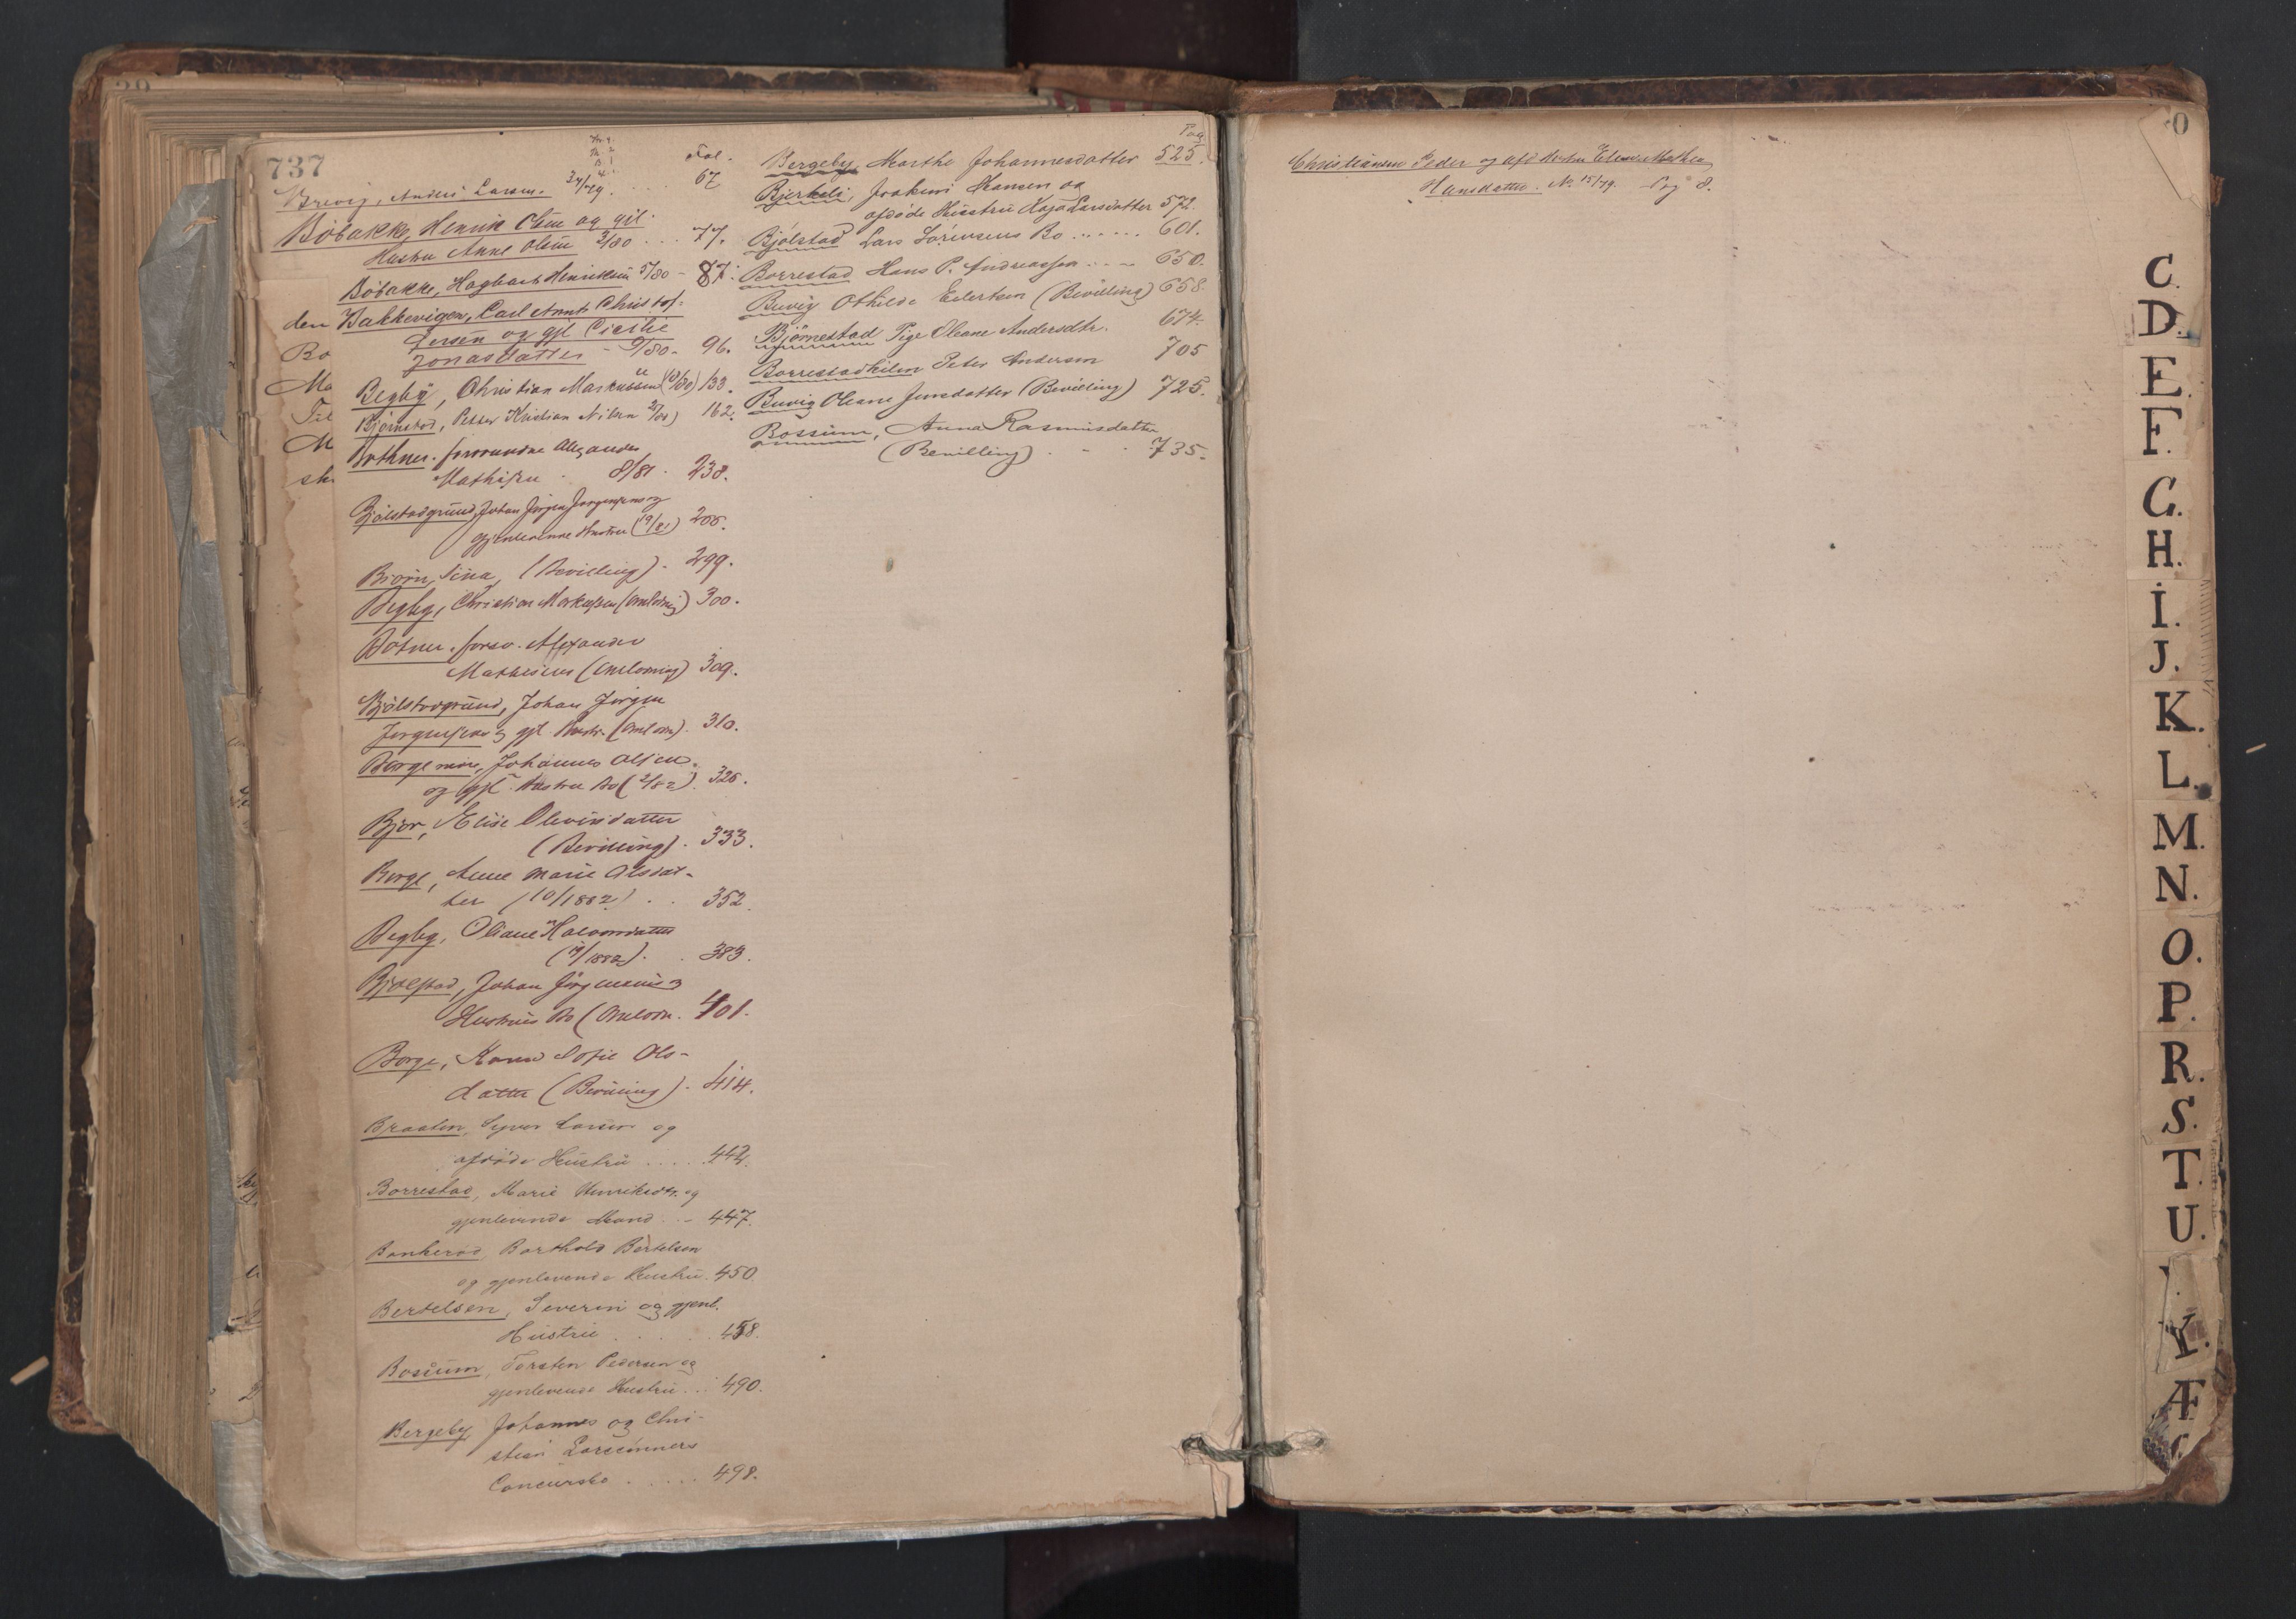 737
Fol.
Brevig, Anders Larsen. 34/79. . . . . 67
Böbakke, Henrik Olsen og gjl.
Hustru Anne Olsen 3/80 . . . 77.
Böbakke, Hagbart Henriksen 5/80 - 87.
den Bakkevigen, Carl Christof-
fersen og gjl Cicilie
Jonasdatter - 9/80 - 96.
Bo
Ma
Til
M
sk
Begby, Christian Markussen 133.
Bjørnstad, Petter Kristian Nilsen 162.
Bothner. forsvundne Alexander
Mathisen . 8/81 . 238.
Bjølstadgrund, Johan Jørgen Jørgensens og
gjenlevende Hustru (19/81)
Bjørn, Sina, (Bevilling) . 299.
Begby, Christian Markussen (Omlodning) 300.
Botner. forsv. Alexander
Mathisens (Omlodning) 309.
Bjølstadgrund, Johan Jørgen
Jørgensens og gjl. Hustr. (Omlodn). 310.
Borge, Johannes Olsen
og gjl. Hustru Bo (2/82). 326.
Bjør, Elise Olevinsdatter
(Bevilling) . 333.
Borge, Anne Marie Olsdat-
ter (10/1882) . . 352
Begby, Oliane Halvorsdatter
(19/1882) . . 383.
Bjølstad, Johan Jørgensens og
Hustrus Bo (Omlodn. 401.
Borge, Karen Sofie Ols-
datter (Bevilling) . 414.
Braaten, Syver Larsen og
afdøde Hustru . . . . 442.
Borrestad, Marie Henriksdtr. og
gjenlevende Mand . . - 447.
Bankerød, Barthold Bertelsen
og gjenlevende Hustru. 450.
Bertelsen, Severin og gjenl.
Hustru . . . . . 458.
Bossum, Torsten Pedersen og
gjenlevende Hustru . . . 490.
Bergeby Johannes og Chri-
stian Larssønners
Concursbo . . . . . 498.
Pag
Bergeby, Marthe Johannesdatter 525.
Bjerkeli, Joakim Hansen og
afdøde Hustru Kaja Larsdatter 572.
Bjølstad Lars Sørensens Bo . . . . . . 601.
Borrestad Hans P. Andreassen . . . - 650.
Buvig Othilde Eilertsen (Bevilling) 658.
Bjørnestad Pige Oleane Andersdtr. 674.
Borrestadkilen Peter Andersen 705
Buvig Oleane Jensdatter (Bevilling) 725.
Bossum, Anna Rasmusdatter
(Bevilling) . - . 735.
Christiansen Peder og afd Hustru Elene Mathea
Hansdatter. No 15/79. Pag 8.
C.
D.
E.
F.
G.
H.
I.
J.
K.
L.
M.
N.
O.
P.
R.
S.
T.
U.
Y.
Æ